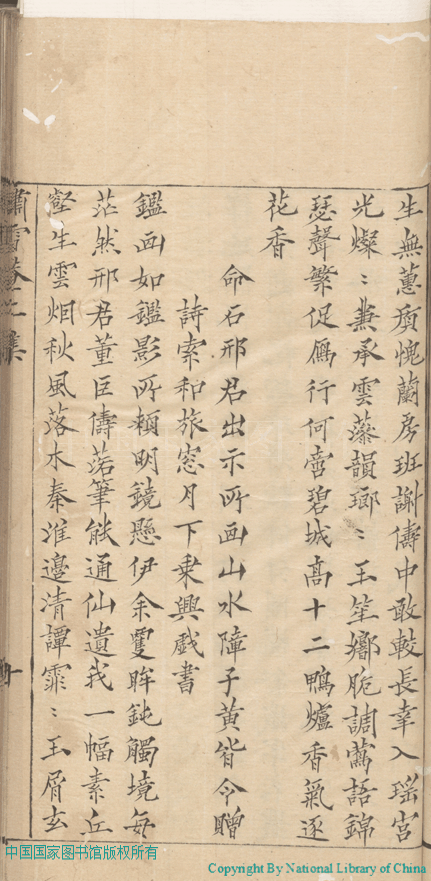 生無蕙質愧蘭房班謝儔中敢較長幸入瑤宮
光燦〻兼承雲藻韻瑯〻玉笙嬌脆調鶯語錦
瑟聲繁促鴈行何啻碧城高十二鴨爐香氣逐
花香
命石邢君出示所画山水障子黄皆令贈
詩索和旅窓月下乗興戯書
鑑画如鑑影所頼明鏡懸伊余雙眸鈍觸境每
茫然邢君董巨儔落筆能通仙遺我一幅素丘
壑生雲烟秋風落木秦淮邊清譚霏〻玉屑玄
中国国家图书馆版权所有
Copyright By National Library of China